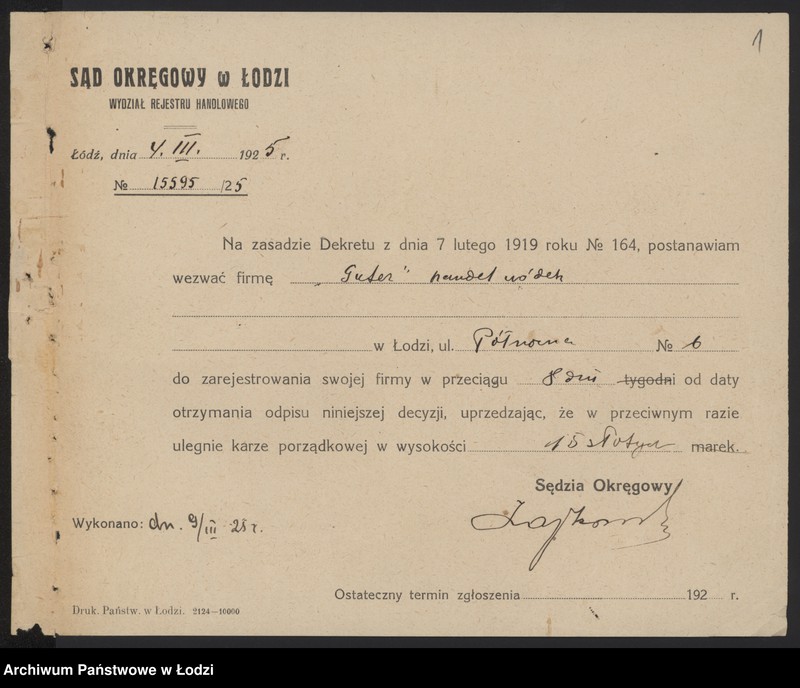 1
SĄD OKRĘGOWY w ŁODZI
WYDZIAŁ REJESTRU HANDLOWEGO
Łódź, dnia 4. III. 1925 r.
№ 15595 /25
Na zasadzie Dekretu z dnia 7 lutego 1919 roku № 164, postanawiam
wezwać firmę „Guter" handel wódek
w Łodzi, ul. Północna № 6
do zarejestrowania swojej firmy w przeciągu 8 dni tygodni od daty
otrzymania odpisu niniejszej decyzji, uprzedzając, że w przeciwnym razie
ulegnie karze porządkowej w wysokości 15 złotych marek.
Sędzia Okręgowy
Wykonano: dn. 9/III 25 r.
Ostateczny termin zgłoszenia 192 r.
Druk. Państw. w Łodzi. 2124—10000
Archiwum Państwowe w Łodzi